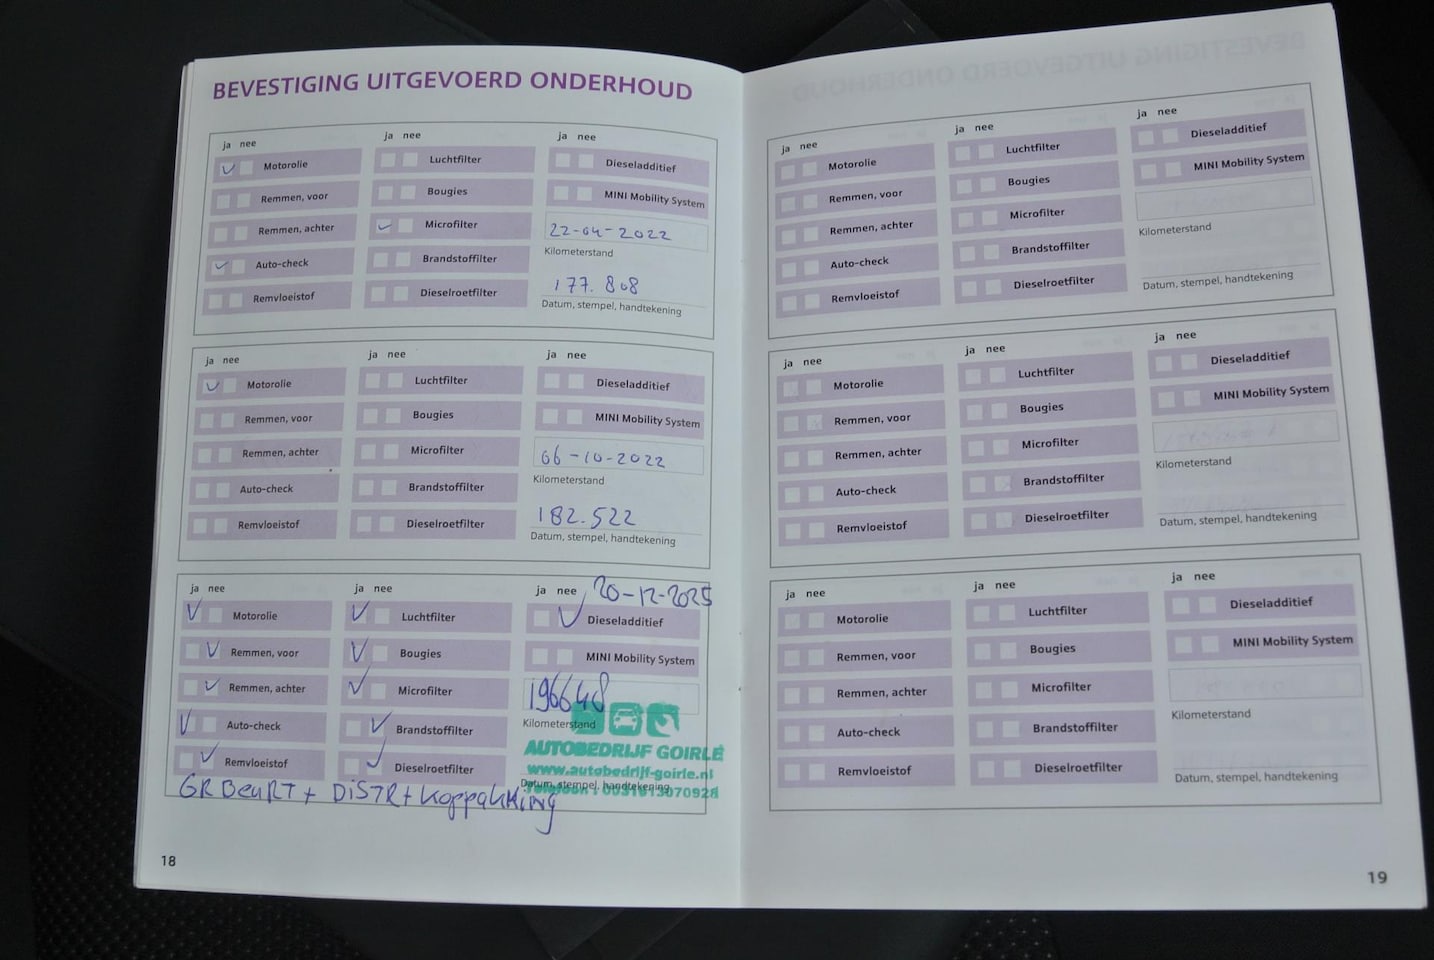 BEVESTIGING UITGEVOERD ONDERHOUD
ja nee
Motorolie
Remmen, voor
Remmen, achter
Auto-check
Remvloeistof
ja nee
Luchtfilter
Bougies
Microfilter
Brandstoffilter
Dieselroetfilter
ja nee
Dieseladditief
MINI Mobility System
22-04-2022
Kilometerstand
177.808
Datum, stempel, handtekening
ja nee
Motorolie
Remmen, voor
Remmen, achter
Auto-check
Remvloeistof
ja nee
Luchtfilter
Bougies
Microfilter
Brandstoffilter
Dieselroetfilter
ja nee
Dieseladditief
MINI Mobility System
06-10-2022
Kilometerstand
182.522
Datum, stempel, handtekening
ja nee
Motorolie
Remmen, voor
Remmen, achter
Auto-check
Remvloeistof
ja nee
Luchtfilter
Bougies
Microfilter
Brandstoffilter
Dieselroetfilter
ja nee 20-12-2025
Dieseladditief
MINI Mobility System
196648
Kilometerstand
AUTOBEDRIJF GOIRLE
www.autobedrijf-goirle.nl
Datum, stempel, handtekening
Telefoon: 0031613070928
GR BeuRT + DiSTR + Koppakking
18
ja nee
Motorolie
Remmen, voor
Remmen, achter
Auto-check
Remvloeistof
ja nee
Luchtfilter
Bougies
Microfilter
Brandstoffilter
Dieselroetfilter
ja nee
Dieseladditief
MINI Mobility System
Kilometerstand
Datum, stempel, handtekening
ja nee
Motorolie
Remmen, voor
Remmen, achter
Auto-check
Remvloeistof
ja nee
Luchtfilter
Bougies
Microfilter
Brandstoffilter
Dieselroetfilter
ja nee
Dieseladditief
MINI Mobility System
Kilometerstand
Datum, stempel, handtekening
ja nee
Motorolie
Remmen, voor
Remmen, achter
Auto-check
Remvloeistof
ja nee
Luchtfilter
Bougies
Microfilter
Brandstoffilter
Dieselroetfilter
ja nee
Dieseladditief
MINI Mobility System
Kilometerstand
Datum, stempel, handtekening
19